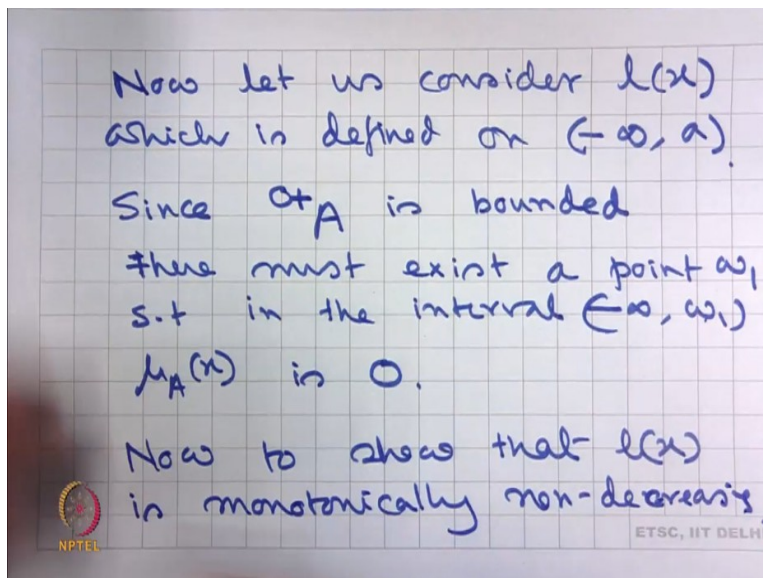 Now let us consider l(x)
which is defined on (-∞, a).
Since ⁰⁺A is bounded
there must exist a point ω₁
s.t in the interval (-∞, ω₁)
μ_A(x) is 0.
Now to show that l(x)
is monotonically non-decreasing
NPTEL
ETSC, IIT DELHI